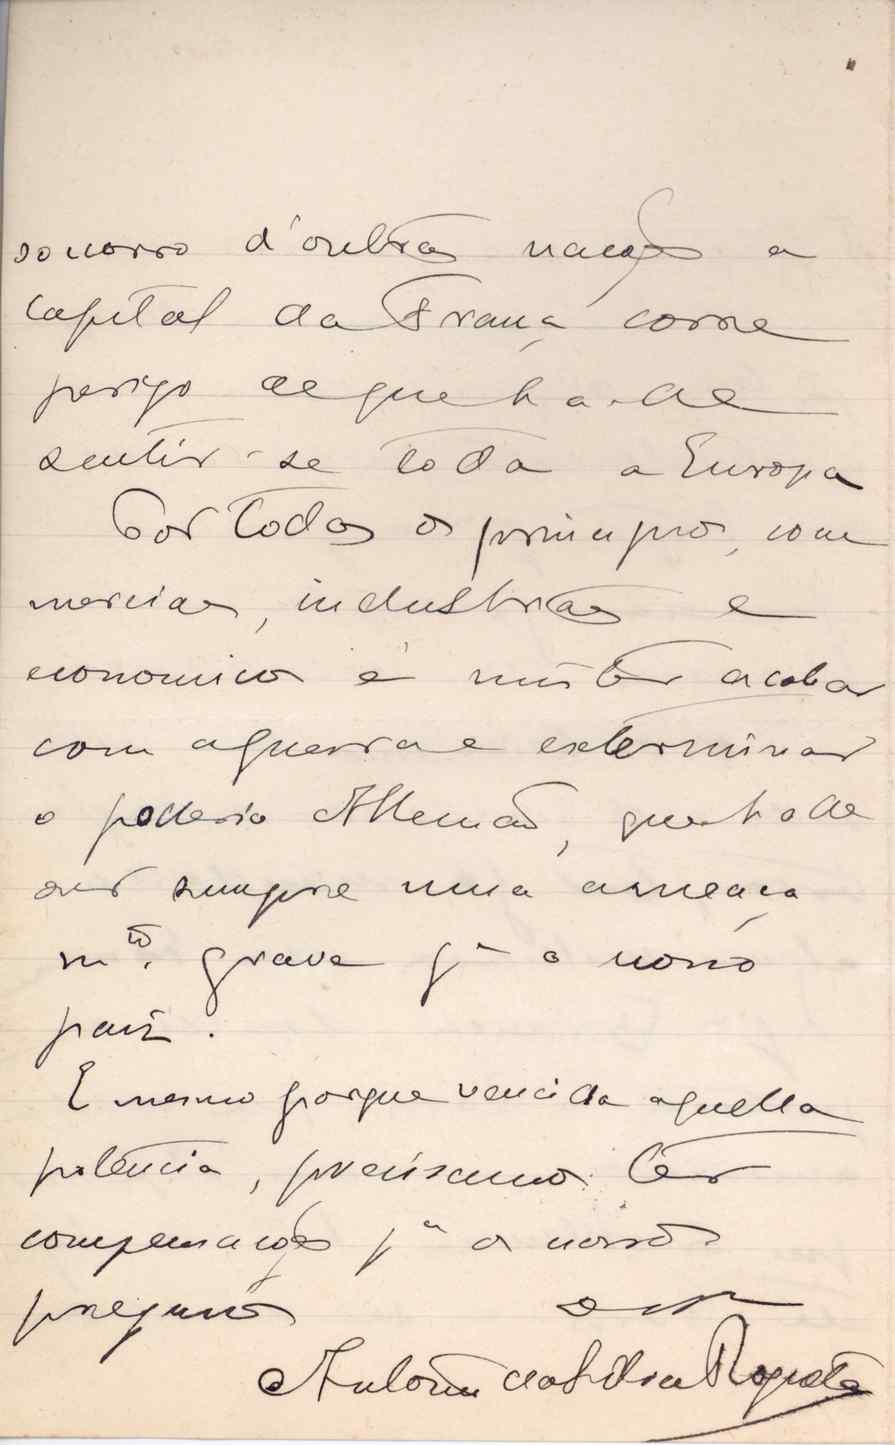 socorro d'outras nações a
capital da França corre
perigo de que ha-de
sentir-se toda a Europa
Por todos os principios, com
merciaes, industriaes e
economicos é mistér acabar
com a guerra e exterminar
o poderio Allemão, que ha de
ser sempre uma ameaça
mto. grave pa o nosso
paiz.
E mesmo porque vencida aquella
potencia, precisamos têr
compensações pa os nossos
prejuisos
Antonio da Silva